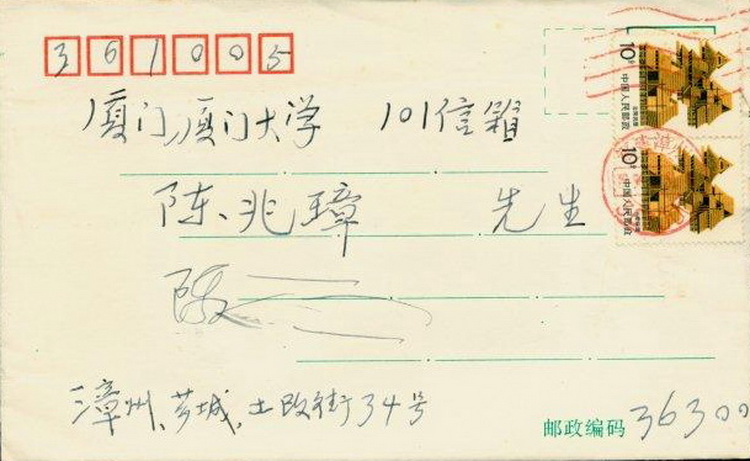 361005
厦门厦门大学 101信箱
陈兆璋 先生
漳州、芗城、土改街34号
邮政编码 36300
10分
中国人民邮政
10分
中国人民邮政